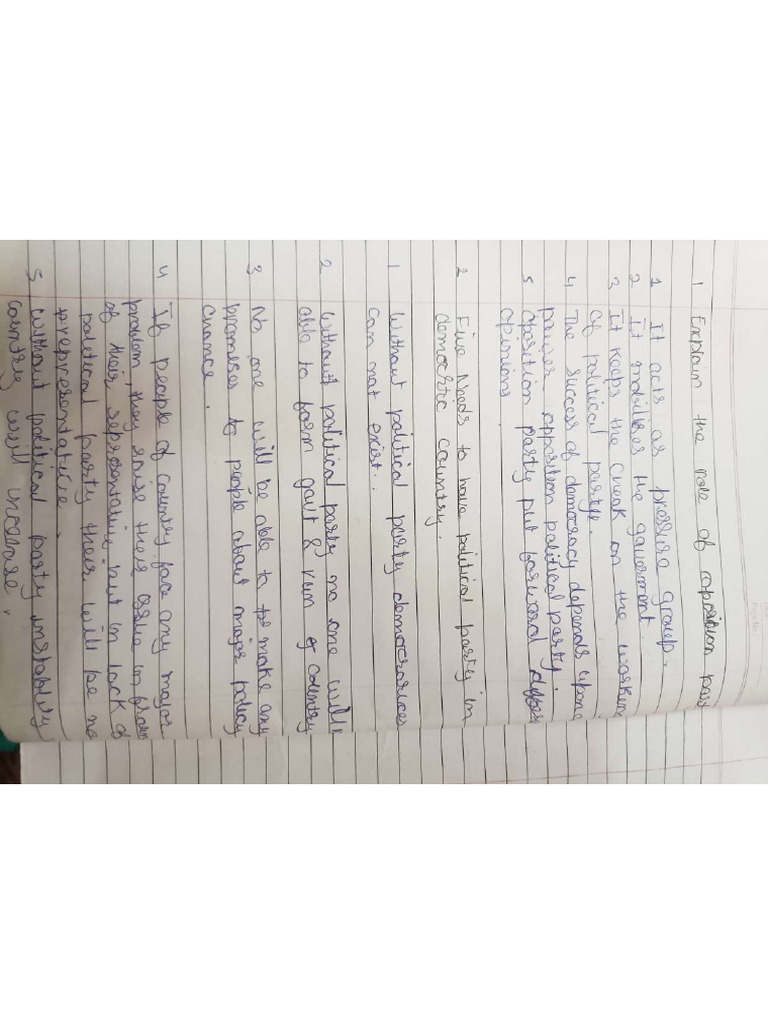 1 Explain the role of opposition
1 It acts as pressure group.
2 It mobilises the goverment.
3 It keeps the cheak on the working
of political partye.
4 The success of democracy depends upone
power opposition political party.
5 oposetion party put forword
opinions.
2 Five Needs to have political party in
democrtic country.
1 Without political party democraices
can not exist.
2 without political party no one will
able to form gavt & run country
3 No one will be able to make any
promisses to people about major policy
chance.
4 If people of country face any major
problem, they raise their issue in
of their representative, but in lack of
political party their will be no
representative.
5 without political party instability
country will incense.